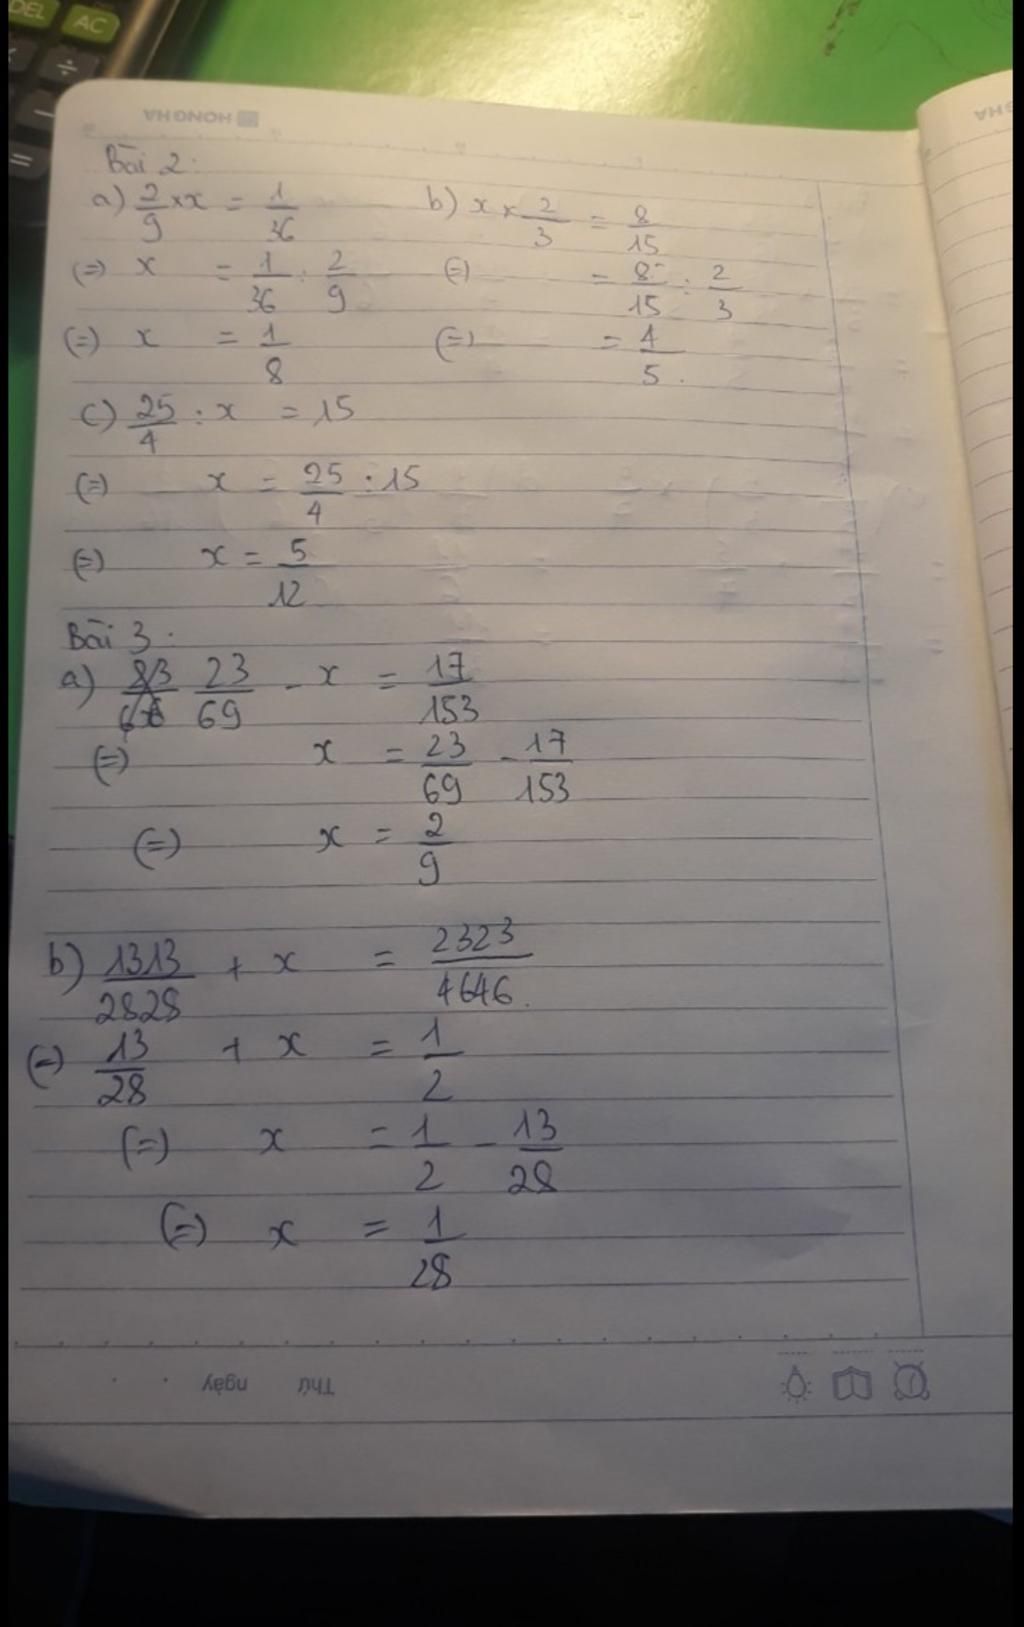 DEL AC
÷
−
=
HONGHA
Bài 2:
a) 2/9 × x = 1/36 b) x × 2/3 = 8/15
(=) x = 1/36 : 2/9 (=) = 8/15 : 2/3
(=) x = 1/8 (=) = 4/5.
c) 25/4 : x = 15
(=) x = 25/4 : 15
(=) x = 5/12
Bài 3:
a) 23/69 - x = 17/153
(=) x = 23/69 - 17/153
(=) x = 2/9
b) 1313/2828 + x = 2323/4646.
(=) 13/28 + x = 1/2
(=) x = 1/2 - 13/28
(=) x = 1/28
Thứ ngày